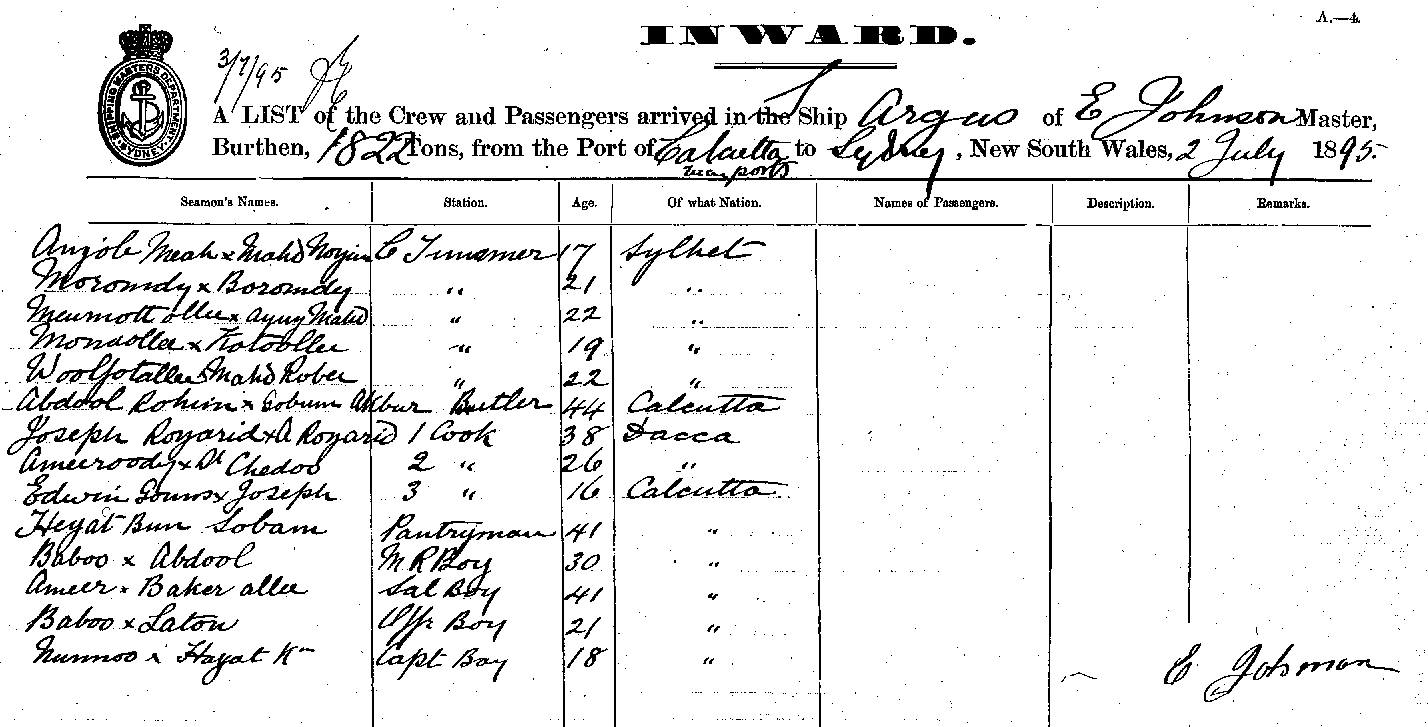 A.—4.
INWARD.
3/7/95
SHIPPING MASTERS DEPARTMENT SYDNEY
A LIST of the Crew and Passengers arrived in the Ship Argus of E Johnson Master,
Burthen, 1822 Tons, from the Port of Calcutta to Sydney, New South Wales, 2 July 1895.
ports
Seamen's Names. Station. Age. Of what Nation. Names of Passengers. Description. Remarks.
Meah x Mahd C Trimmer 17 Sylhet
Moromdy x Boromdy " 21 "
ollee x Mahd " 22 "
Monaollee x Kotoollee " 19 "
Mahd Rober " 22 "
Abdool Rohim x Akbur Butler 44 Calcutta
Joseph Royarid x A Royarid 1 Cook 38 Dacca
Ameeroody x Chedoo 2 " 26 "
Edwin x Joseph 3 " 16 Calcutta
Heyat Bun Sobam Pantryman 41 "
Baboo x Abdool M R Boy 30 "
Ameer x Baker allee Sal Boy 41 "
Baboo x Laton Offr Boy 21 "
Nunnoo x Hayat Kn Capt Boy 18 "
E Johnson